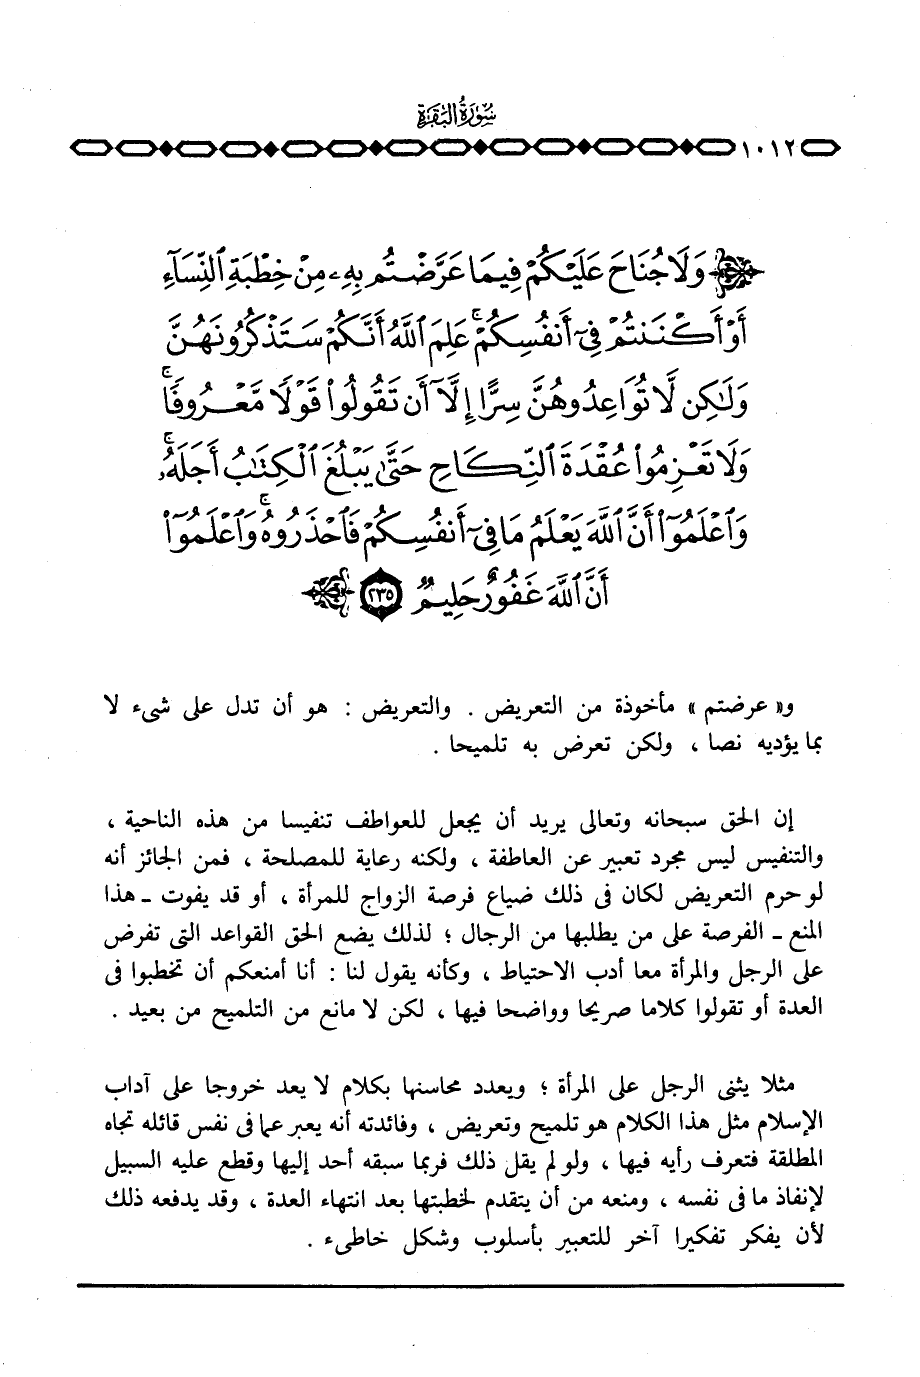 سُورَةُ البَقَرَةِ
١٠١٢
وَلَا جُنَاحَ عَلَيْكُمْ فِيمَا عَرَّضْتُم بِهِۦ مِنْ خِطْبَةِ ٱلنِّسَآءِ
أَوْ أَكْنَنتُمْ فِىٓ أَنفُسِكُمْ ۚ عَلِمَ ٱللَّهُ أَنَّكُمْ سَتَذْكُرُونَهُنَّ
وَلَٰكِن لَّا تُوَاعِدُوهُنَّ سِرًّا إِلَّآ أَن تَقُولُوا۟ قَوْلًا مَّعْرُوفًا ۚ
وَلَا تَعْزِمُوا۟ عُقْدَةَ ٱلنِّكَاحِ حَتَّىٰ يَبْلُغَ ٱلْكِتَٰبُ أَجَلَهُۥ ۚ
وَٱعْلَمُوٓا۟ أَنَّ ٱللَّهَ يَعْلَمُ مَا فِىٓ أَنفُسِكُمْ فَٱحْذَرُوهُ ۚ وَٱعْلَمُوٓا۟
أَنَّ ٱللَّهَ غَفُورٌ حَلِيمٌ ٢٣٥
و« عرضتم » مأخوذة من التعريض . والتعريض : هو أن تدل على شىء لا
بما يؤديه نصا ، ولكن تعرض به تلميحا .
إن الحق سبحانه وتعالى يريد أن يجعل للعواطف تنفيسا من هذه الناحية ،
والتنفيس ليس مجرد تعبير عن العاطفة ، ولكنه رعاية للمصلحة ، فمن الجائز أنه
لو حرم التعريض لكان فى ذلك ضياع فرصة الزواج للمرأة ، أو قد يفوت ـ هذا
المنع ـ الفرصة على من يطلبها من الرجال ؛ لذلك يضع الحق القواعد التى تفرض
على الرجل والمرأة معا أدب الاحتياط ، وكأنه يقول لنا : أنا أمنعكم أن تخطبوا فى
العدة أو تقولوا كلاما صريحا وواضحا فيها ، لكن لا مانع من التلميح من بعيد .
مثلا يثنى الرجل على المرأة ؛ ويعدد محاسنها بكلام لا يعد خروجا على آداب
الإسلام مثل هذا الكلام هو تلميح وتعريض ، وفائدته أنه يعبر عما فى نفس قائله تجاه
المطلقة فتعرف رأيه فيها ، ولو لم يقل ذلك فربما سبقه أحد إليها وقطع عليه السبيل
لإنفاذ ما فى نفسه ، ومنعه من أن يتقدم لخطبتها بعد انتهاء العدة ، وقد يدفعه ذلك
لأن يفكر تفكيرا آخر للتعبير بأسلوب وشكل خاطىء .